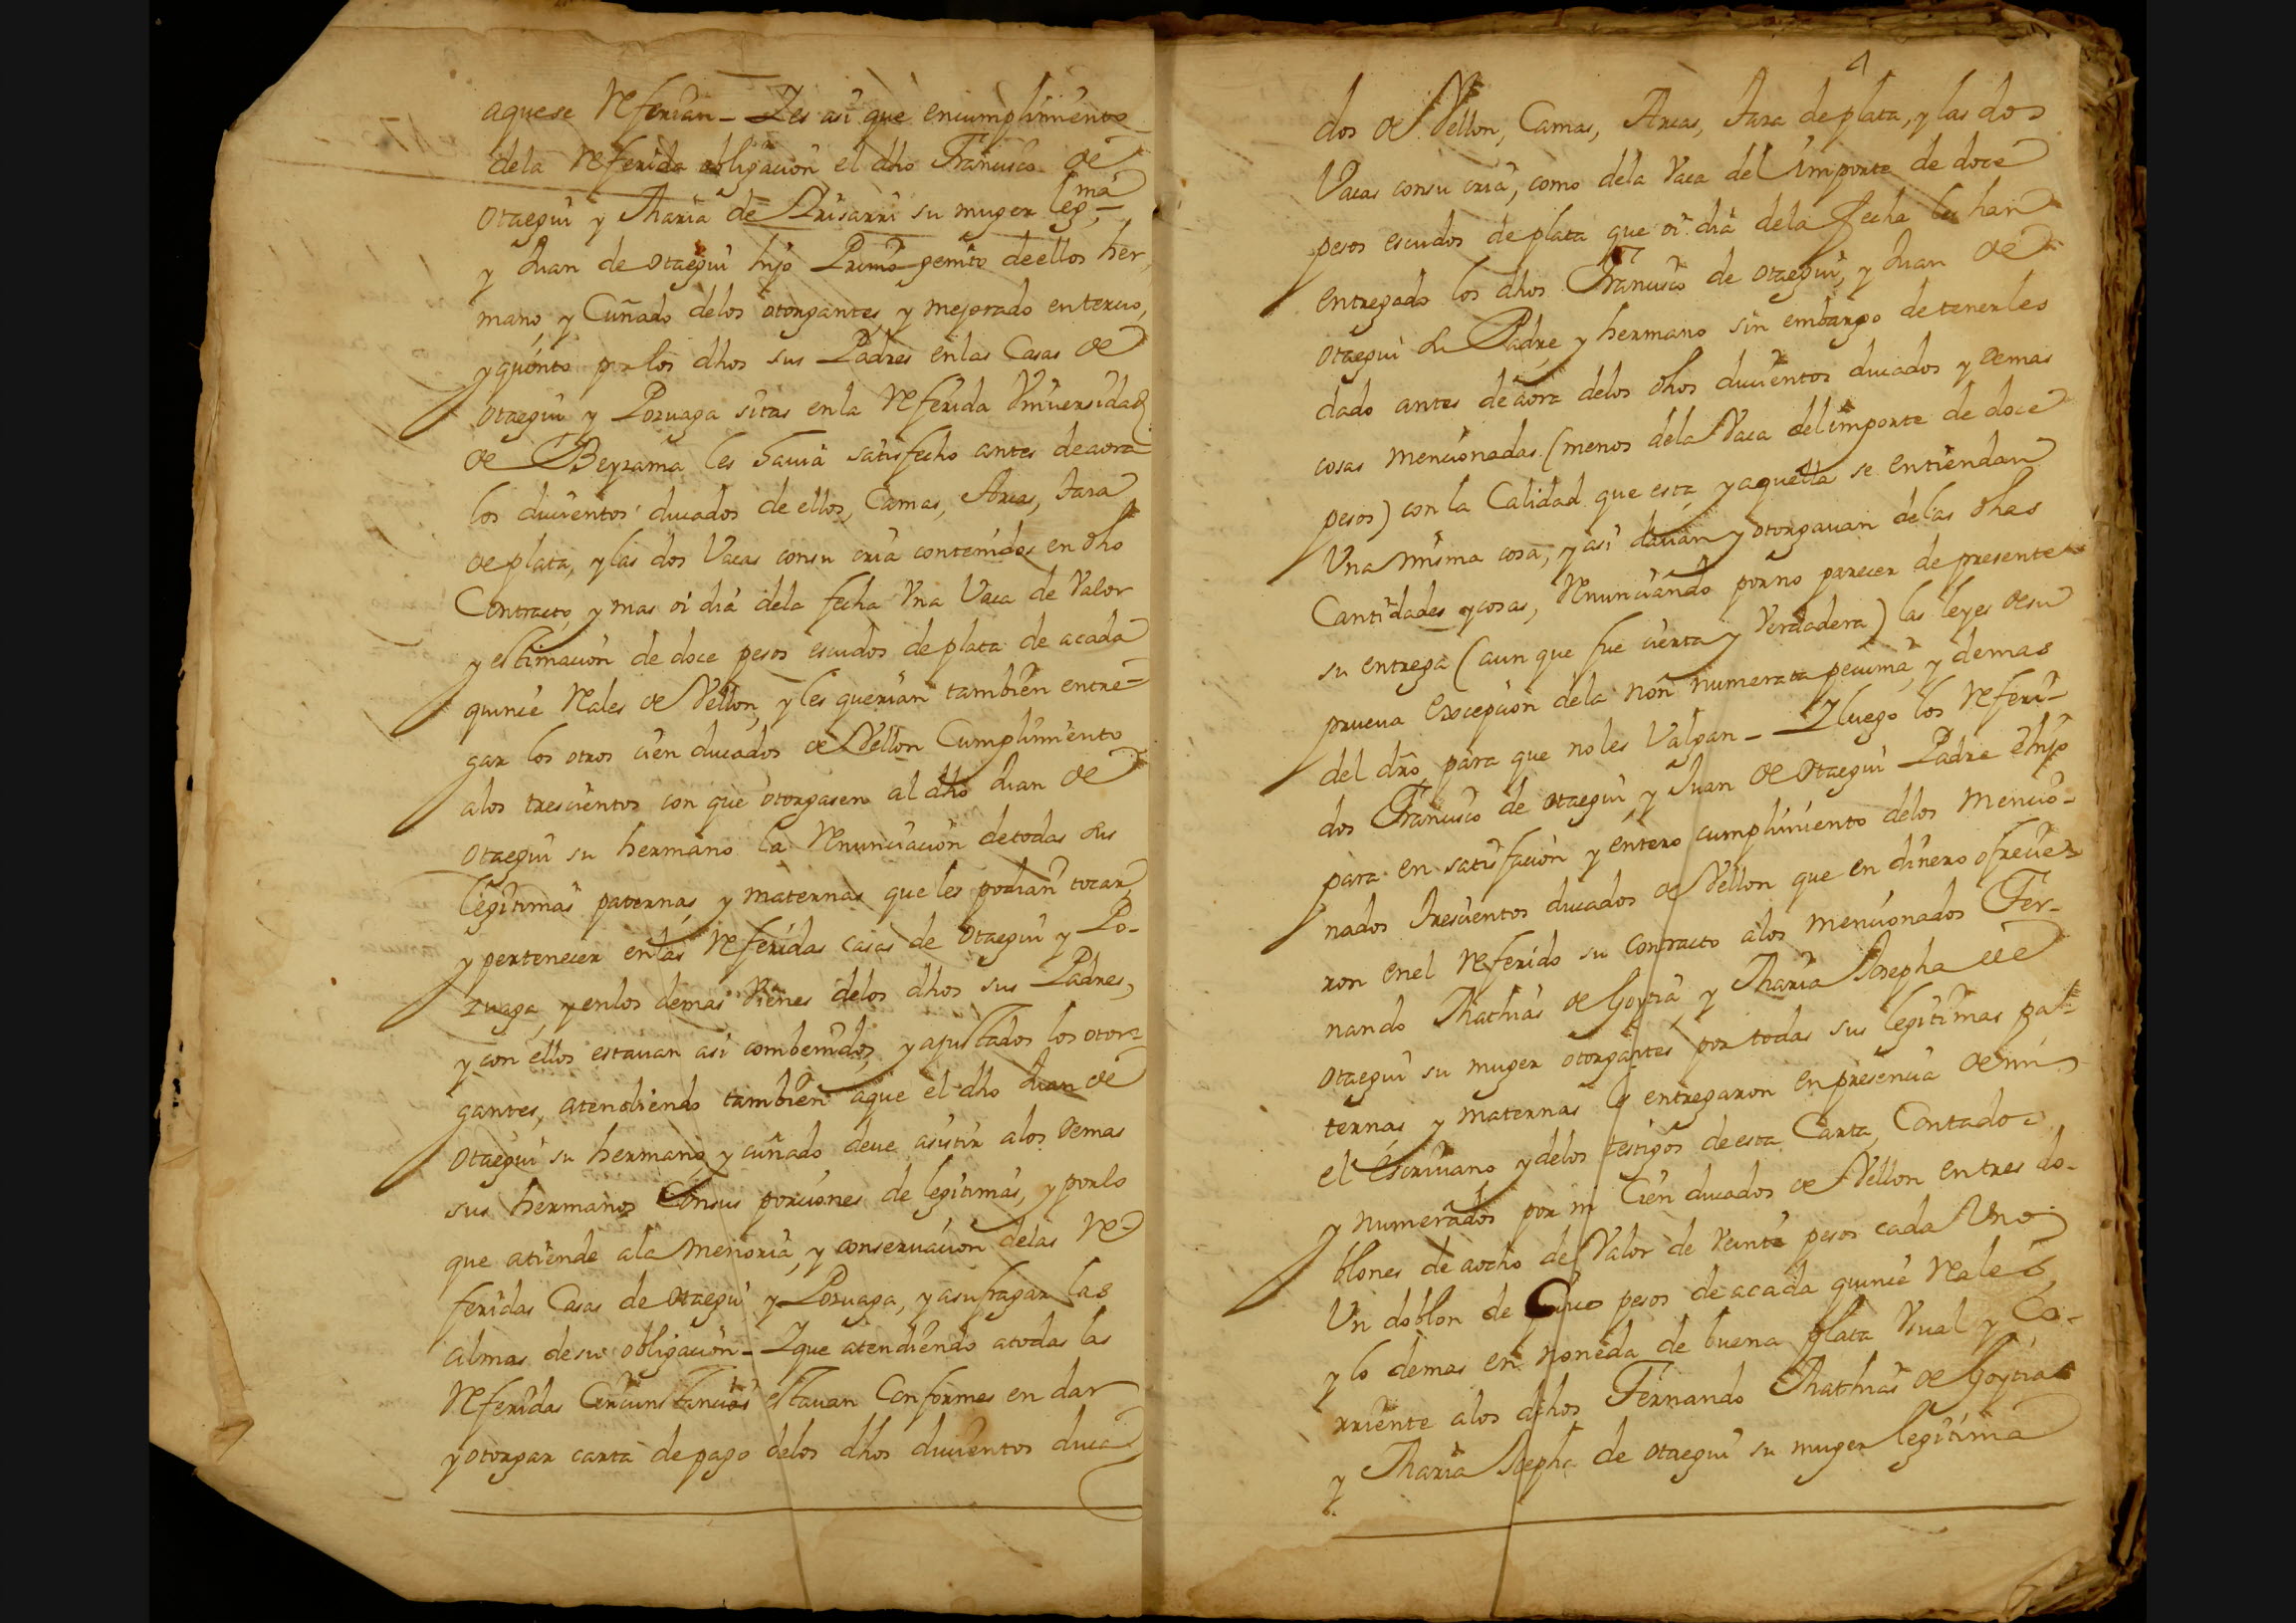 aquese Referian - Y es asi que encumplimiento
dela Referida obligacion el dho Francisco de
otaegui y Maria de Irisarri su muger legma,
y Juan de otaegui hijo Primo genito deellos her,
mano, y Cuñado delos otorgantes, y mejorado entercio,
y quinto por los dhos sus Padres enlas Casas de
otaegui y Poruaga sitas enla Referida Vniversidad
de Beyzama les hauia satisfecho antes deaora
los ducientos ducados de ellos, Camas, Arcas, tara
de plata, y las dos Vacas consu cria contenidos en dho
Contracto, y mas oi dia dela fecha Vna Vaca de Valor
y estimacion de doce pesos escudos de plata de acada
quince Reales de Vellon, y les querian tambien entre-
gar los otros cien ducados de Vellon Cumplimiento
alos trescientos con que otorgasen al dho Juan de
otaegui su hermano la Renunciacion detodas sus
legitimas paternas, y maternas que les podian tocar,
y pertenecer enlas Referidas casas de otaegui y Po-
ruaga, y enlos demas Vienes delos dhos sus Padres,
y con ellos estauan asi combenidos, y ajustados los otor-
gantes, atendiendo tambien aque el dho Juan de
otaegui su hermano, y cuñado deue asistir alos demas
sus hermanos Consus porciones de legitimas, y porlo
que atiende ala Memoria, y conseruacion delas Re-
feridas Casas de otaegui y Poruaga, y asufragar las
almas desu obligacion - Y que atendiendo atodas las
Referidas Circunstancias estauan Conformes en dar
y otorgar carta de pago delos dhos ducientos duca
4
dos de Vellon, Camas, Arcas, tara de plata, y las dos
Vacas consu cria, como dela Vaca del importe de doce
pesos escudos de plata que oi dia dela fecha les han
entregado los dhos Francisco de otaegui, y Juan de
otaegui su Padre, y hermano sin embargo detenerles
dado antes deaora delos dhos ducientos ducados y demas
cosas mencionadas (menos dela Vaca del importe de doce
pesos) con la Calidad que esta, y aquella se entiendan
Vna misma cosa, y asi dauan y otorgauan delas dhas
Cantidades y cosas, Renunciando porno parecer de presente
su entrega (aun que fue cierta y Verdadera) las leyes desu
prueua excepcion dela non numerata pecunia, y demas
del dro para que noles Valgan - Y luego los Referi-
dos Francisco de otaegui, y Juan de otaegui Padre e hijo
para en satisfacion y entero cumplimiento delos mencio-
nados trescientos ducados de Vellon que en dinero ofrecie-
ron enel Referido su contracto alos mencionados Fer-
nando Mathias de Goytia, y Maria Josepha de
otaegui su muger otorgantes por todas sus legitimas pa-
ternas y maternas entregaron enpresencia de mi
el escriuano y delos testigos deesta Carta, Contados
y numerados por mi Cien ducados de Vellon entres do-
blones de aocho del Valor de Veinte pesos cada Vno
Vn doblon de Cinco pesos de acada quince Reales,
y lo demas en moneda de buena plata Vsual y Co-
rriente alos dichos Fernando Mathias de Goytia
y Maria Josepha de otaegui su muger legitima